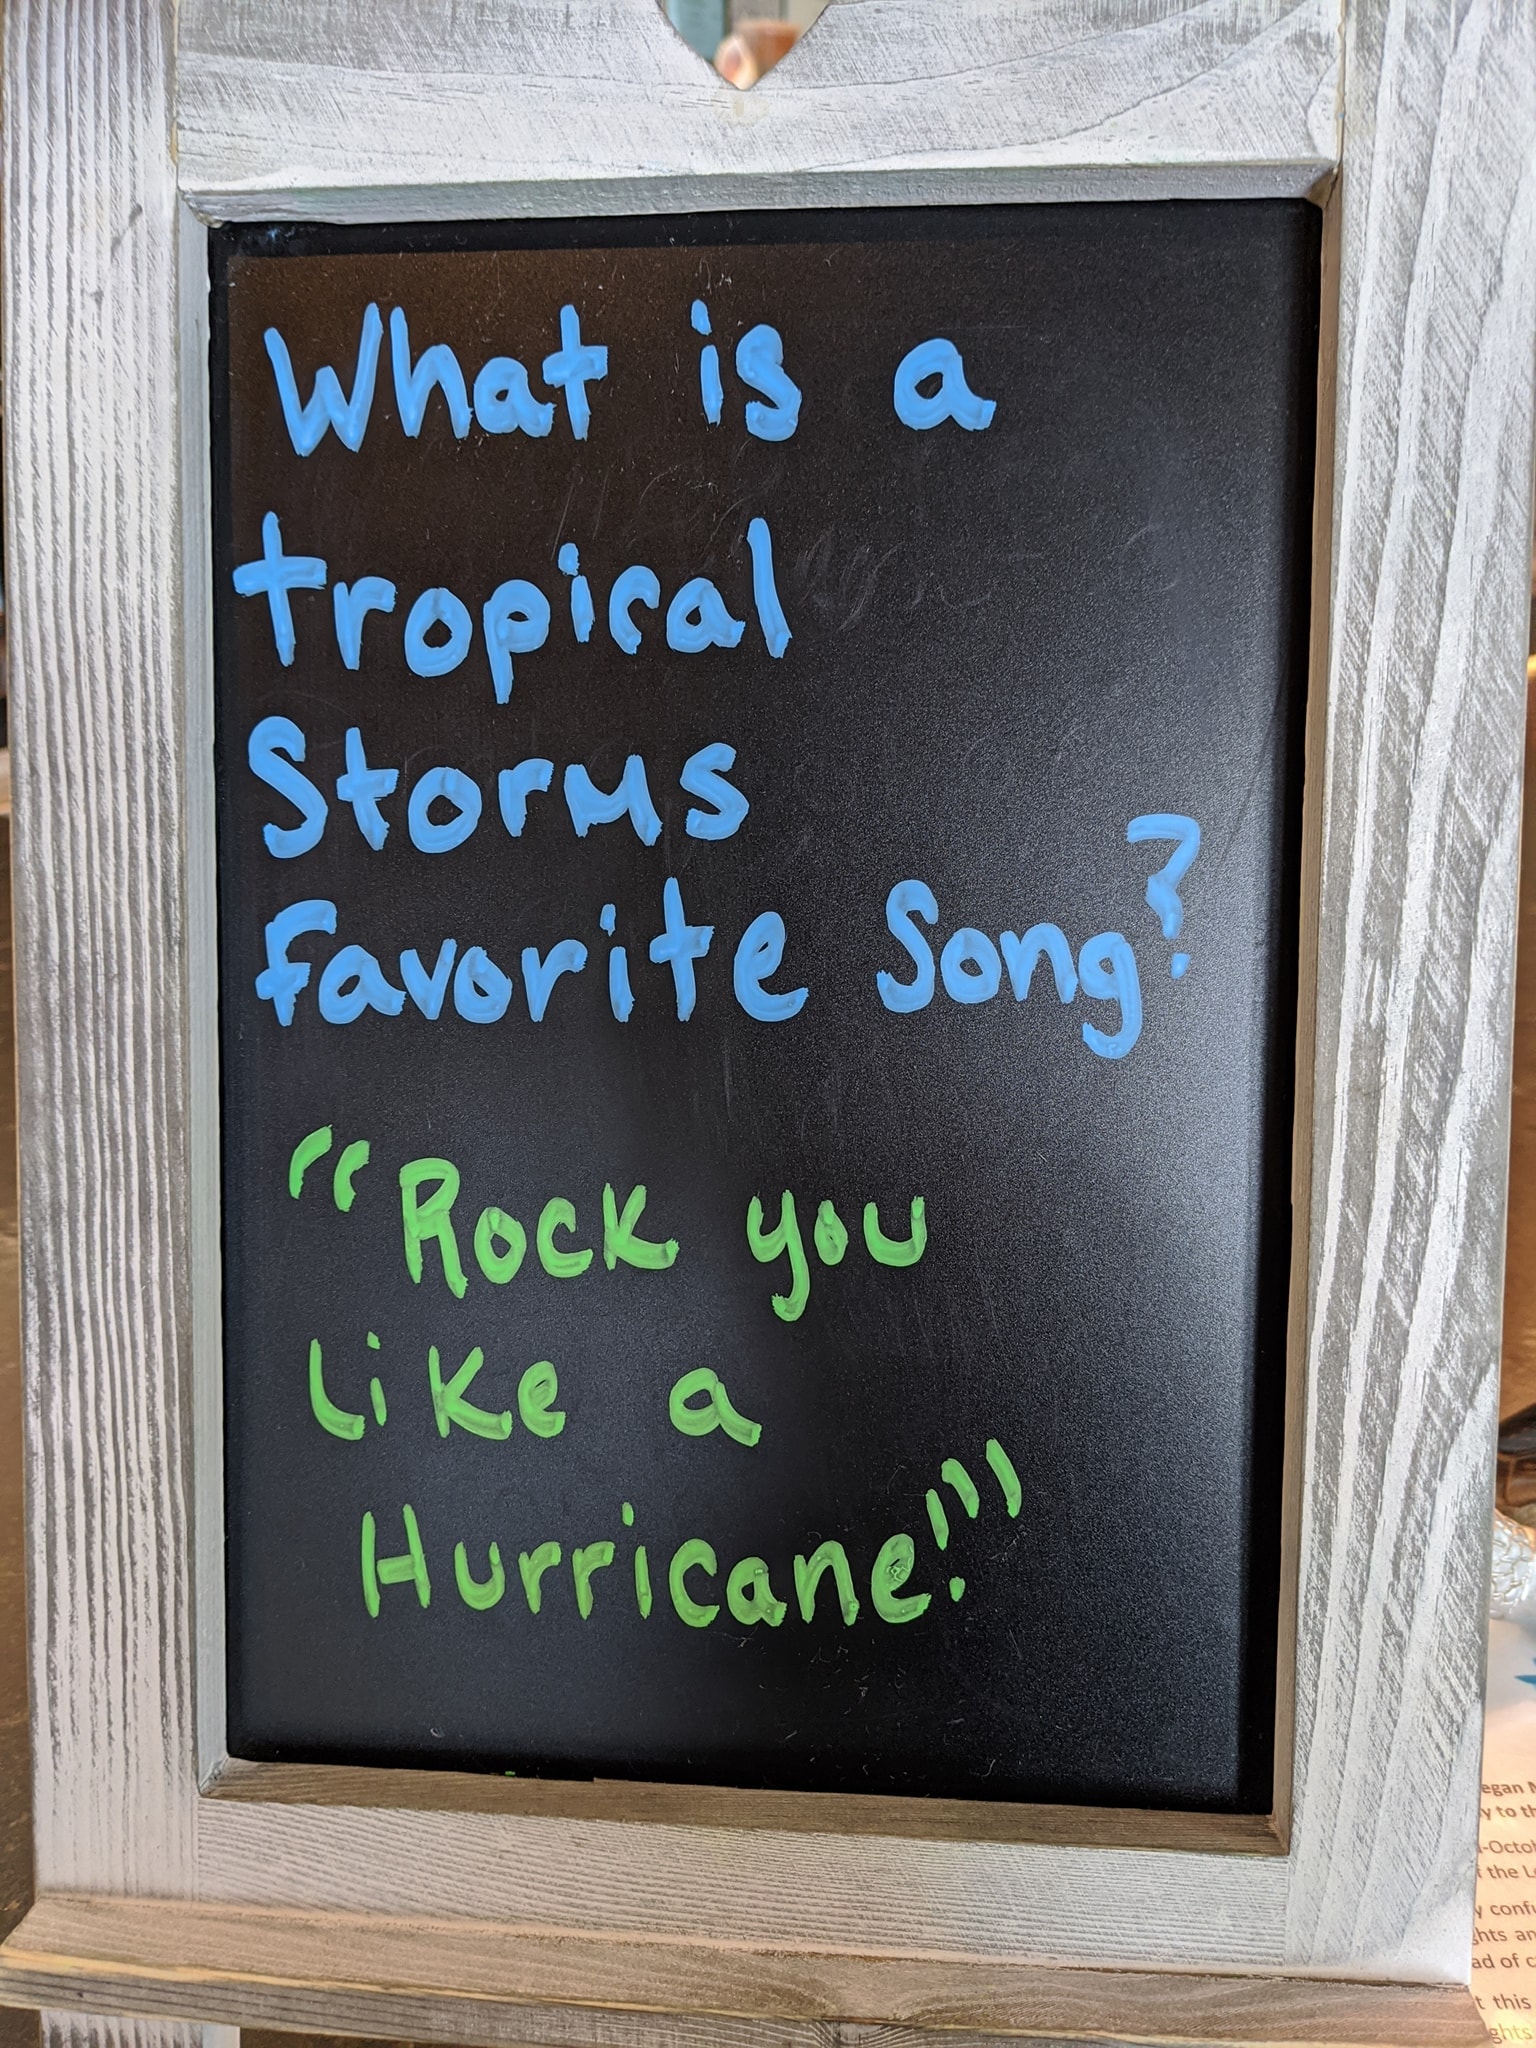 What is a
tropical
Storms
favorite Song?
"Rock you
like a
Hurricane!"
egan
y to th
-Octob
the L
y conf
ghts an
ad of c
t this
ghts